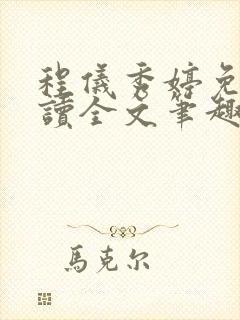 程儀秀婷免
讀全文筆趣
馬克尔